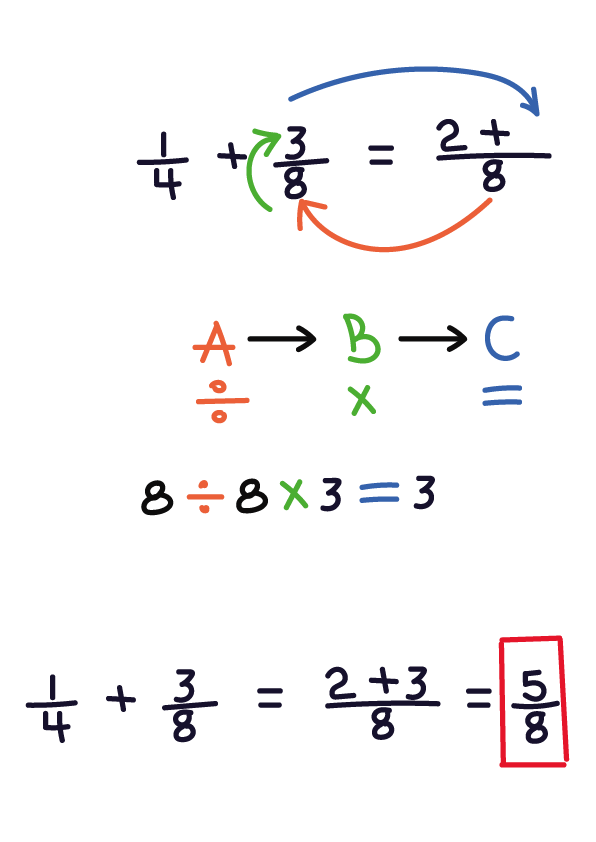 1/4 + 3/8 = 2 + /8
A → B → C
÷ × =
8 ÷ 8 × 3 = 3
1/4 + 3/8 = 2 + 3/8 = 5/8